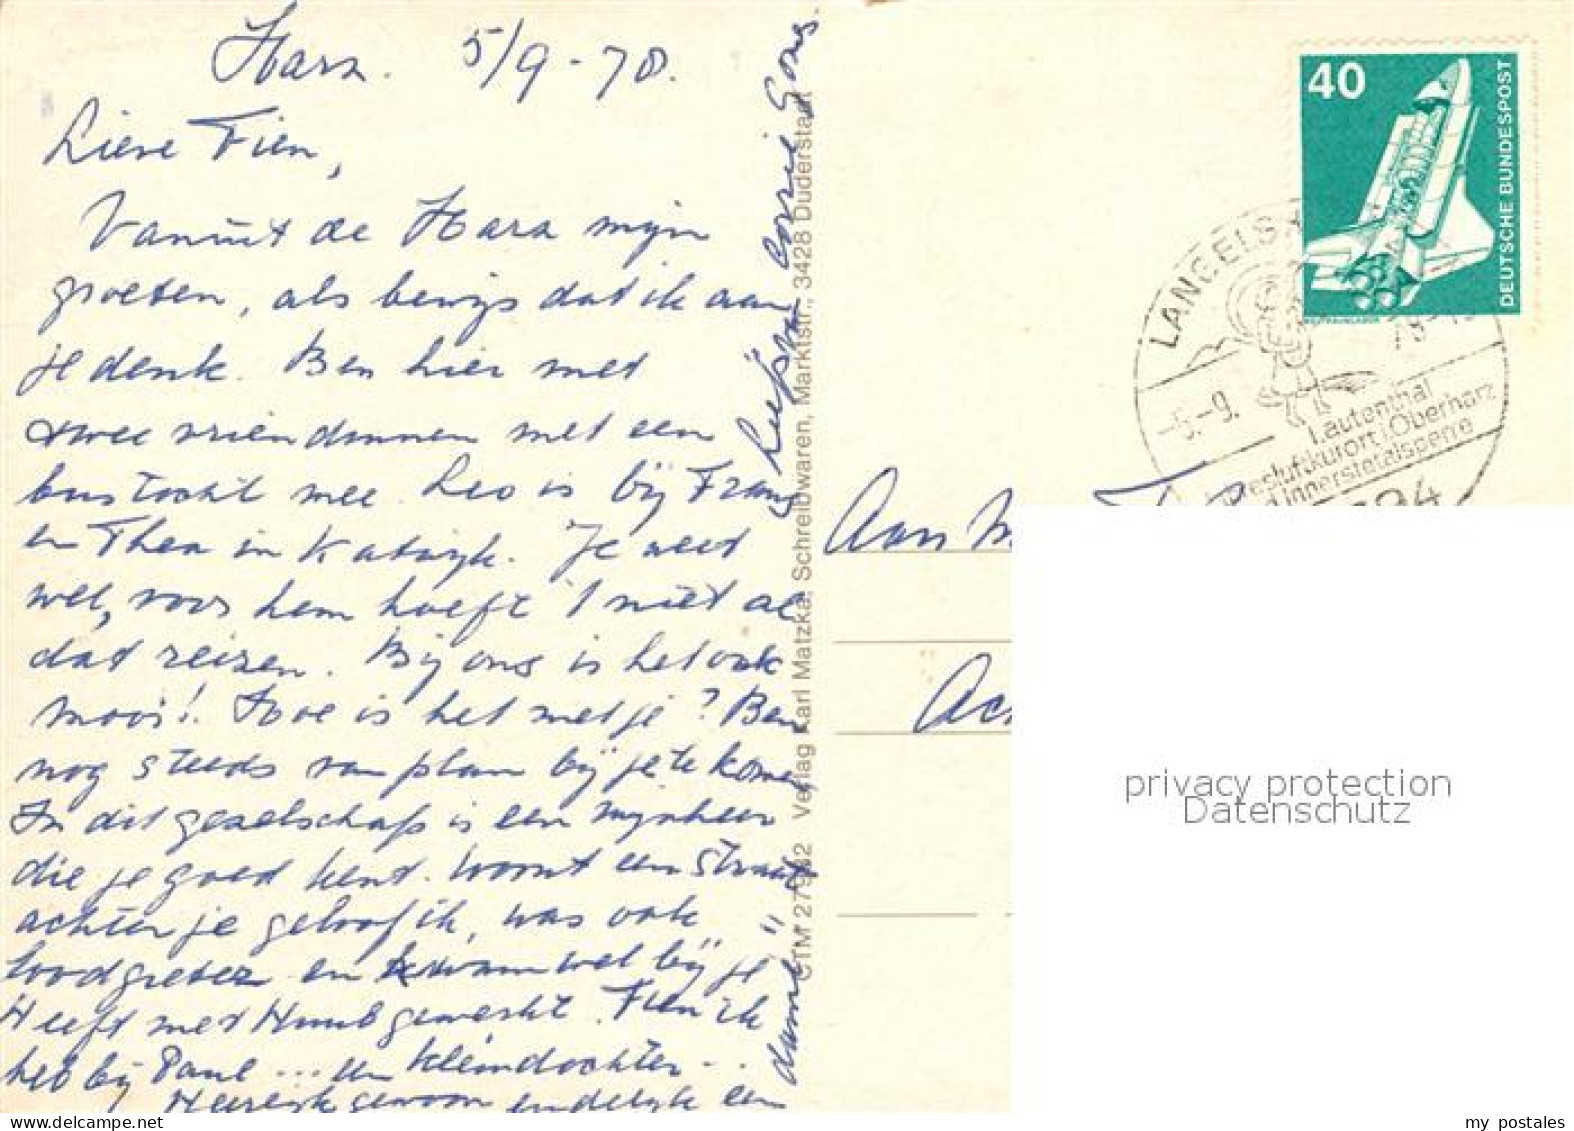 Harz. 5/9-78.
Lieve Fien,
Vanuit de Harz mijn
groeten, als bewijs dat ik aan
je denk. Ben hier met
twee vriendinnen met een
bustocht mee. Leo is bij Frans
en Thea in Katwijk. Je weet
wel, voor hem hoeft 't niet al
dat reizen. Bij ons is het ook
mooi! Hoe is het met je? Ben
nog steeds van plan bij je te komen
In dit gezelschap is een mijnheer
die je goed kent. Woont een straat
achter je geloof ik, was ook
loodgieter en kwam wel bij je
Heeft met Huub gewerkt. Fien ik
heb bij Paul ... een kleindochter..
Heerlijk gewoon eindelijk een
"dame"
Liefs van Corrie
CTM 27982 Verlag Karl Matzka, Schreibwaren, Marktstr., 3428 Duderstadt
40
DEUTSCHE BUNDESPOST
LANGELS
-5.-9.
Lautenthal
Oberharz
Innerstetalsperre
Aan M
Ac
privacy protection
Datenschutz
my postales
www.delcampe.net